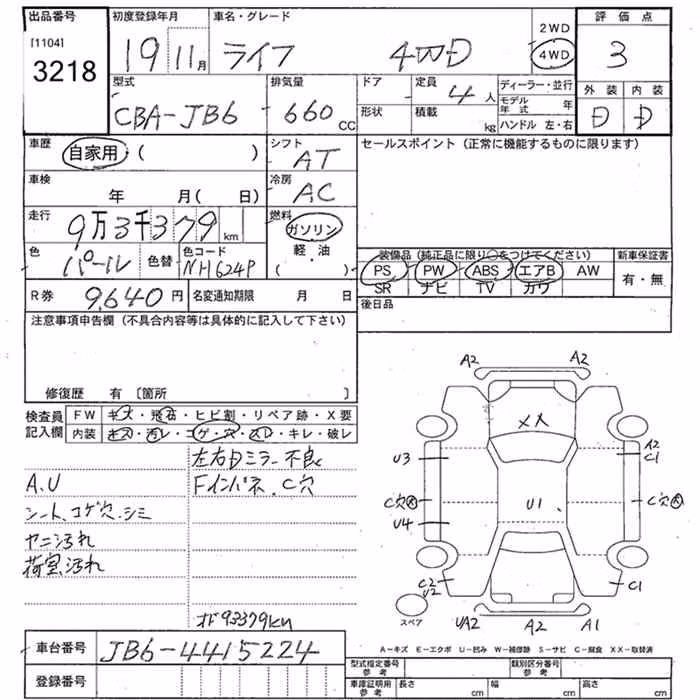 出品番号 初度登録年月 車名・グレード 評価点
[1104] 3218 19 11月 ライフ 4WD 2WD 4WD 3
型式 排気量 ドア 定員 ディーラー・並行 外装 内装
CBA-JB6 660cc 4人 モデル年式 年 D D
形状 積載 kg ハンドル 左・右
車歴 自家用 ( ) シフト AT セールスポイント（正常に機能するものに限ります）
車検 年 月( 日) 冷房 AC
走行 9万3千379km 燃料 ガソリン 軽・油 ( )
色 パール 色替 色コード NH624P
装備品（純正品に限り○をつけてください） 新車保証書
PS PW ABS エアB AW 有・無
SR ナビ TV カワ
R券 9640円 名変通知期限 月 日 後日品
注意事項申告欄（不具合内容等は具体的に記入して下さい）
修復歴 有 〔箇所 〕
検査員記入欄 FW キズ・飛石・ヒビ割・リペア跡・X要
内装 キズ・汚レ・コゲ・穴・スレ・キレ・破レ
左右Dミラー不良
A.U Fインパネ、C穴
シート、コゲ穴.シミ
ヤニ汚れ
荷室汚れ
オド93379km
A2 A2
XX
U3 A2 C1
C穴大 U1 C穴大
U4
C2 U2 C1
スペア UA2 A2 A1
A-キズ E-エクボ U-凹み W-補修跡 S-サビ C-腐食 XX-取替済
車台番号 JB6-4415224
登録番号
型式指定番号 参考 類別区分番号 参考
車庫証明用 参考 長さ cm 幅 cm 高さ cm